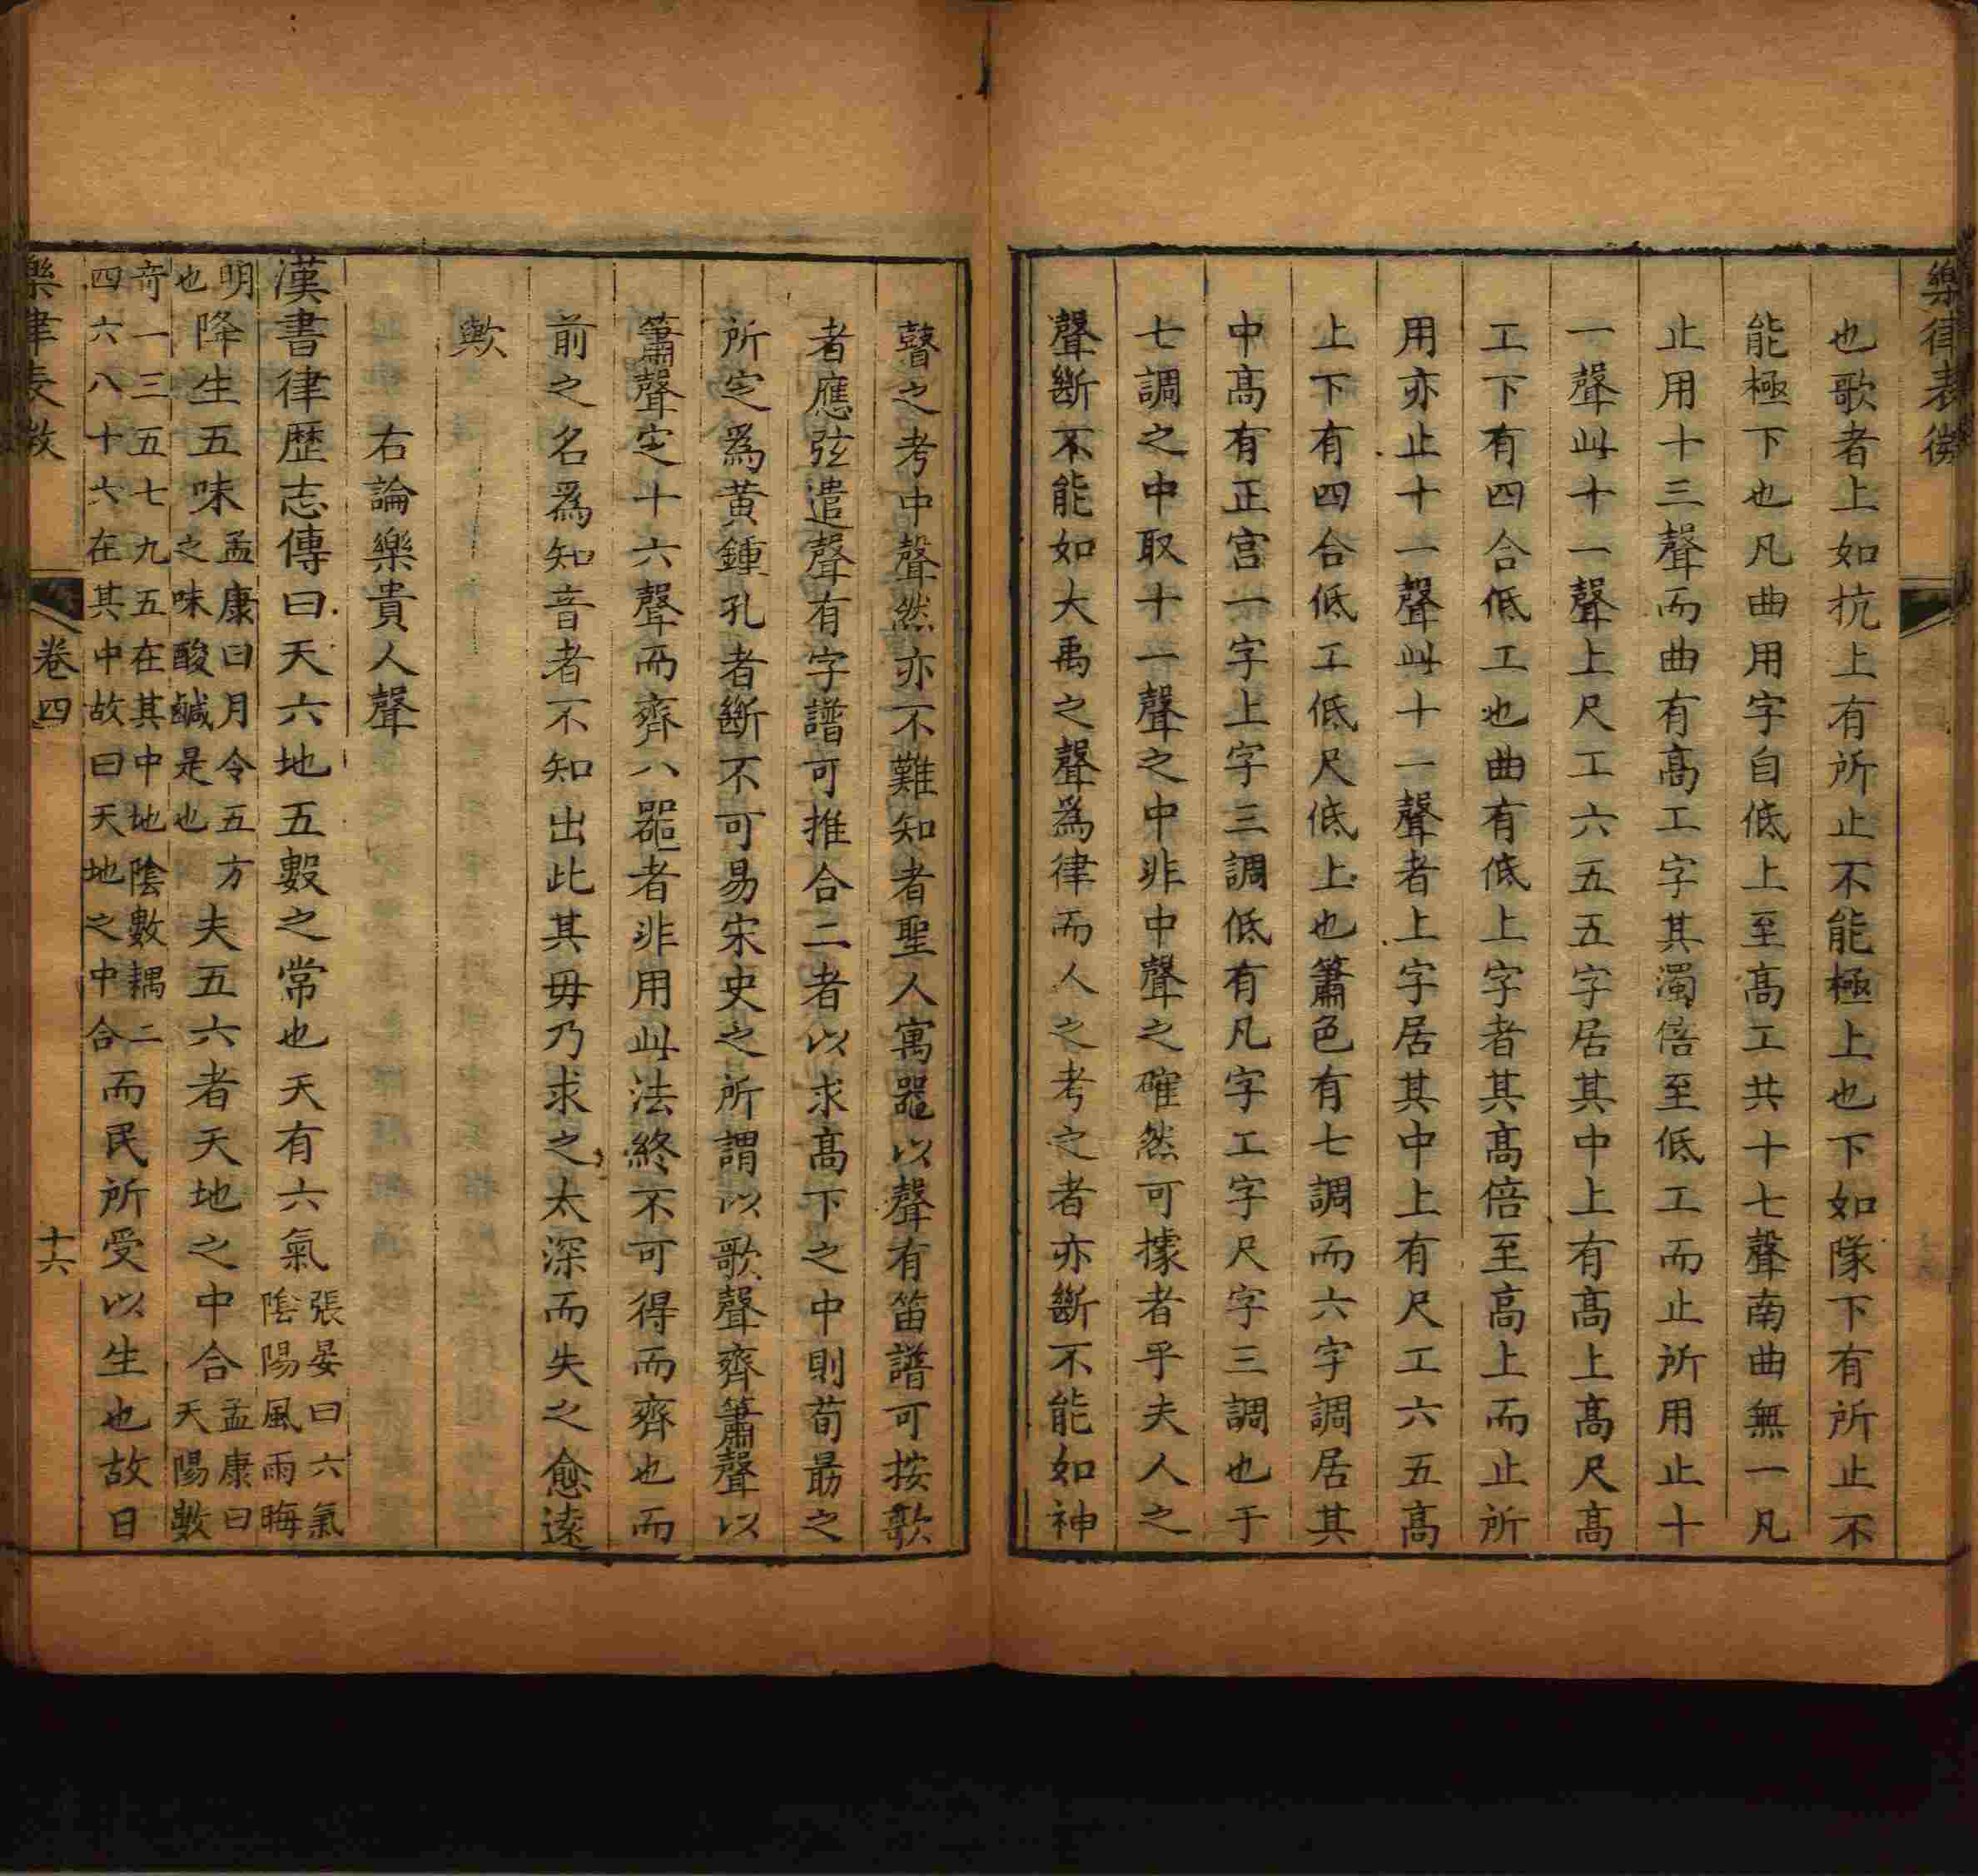 樂律表微
也歌者上如抗上有所止不能極上也下如隊下有所止不
能極下也凡曲用字自低上至高工共十七聲南曲無一凡
止用十三聲而曲有高工字其濁倍至低工而止所用止十
一聲此十一聲上尺工六五五字居其中上有高上高尺高
工下有四合低工也曲有低上字者其高倍至高上而止所
用亦止十一聲此十一聲者上字居其中上有尺工六五高
上下有四合低工低尺低上也簫色有七調而六字調居其
中高有正宫一字上字三調低有凡字工字尺字三調也于
七調之中取十一聲之中非中聲之確然可據者乎夫人之
聲斷不能如大禹之聲為律而人之考之者亦斷不能如神
瞽之考中聲然亦不難知者聖人寓器以聲有笛譜可按歌
者應弦遣聲有字譜可推合二者以求高下之中則荀勗之
所定爲黃鍾孔者斷不可易宋史之所謂以歌聲齊簫聲以
簫聲定十六聲而齊八器者非用此法終不可得而齊也而
前之名爲知音者不知出此其毋乃求之太深而失之愈遠
歟
右論樂貴人聲
漢書律歴志傳曰天六地五數之常也天有六氣張晏曰六氣
陰陽風雨晦
明
也降生五味孟康曰月令五方
之味酸鹹是也夫五六者天地之中合孟康曰
天陽數
奇一三五七九五在其中地陰數耦二
四六八十六在其中故曰天地之中合而民所受以生也故日
樂律表微
卷四
十六